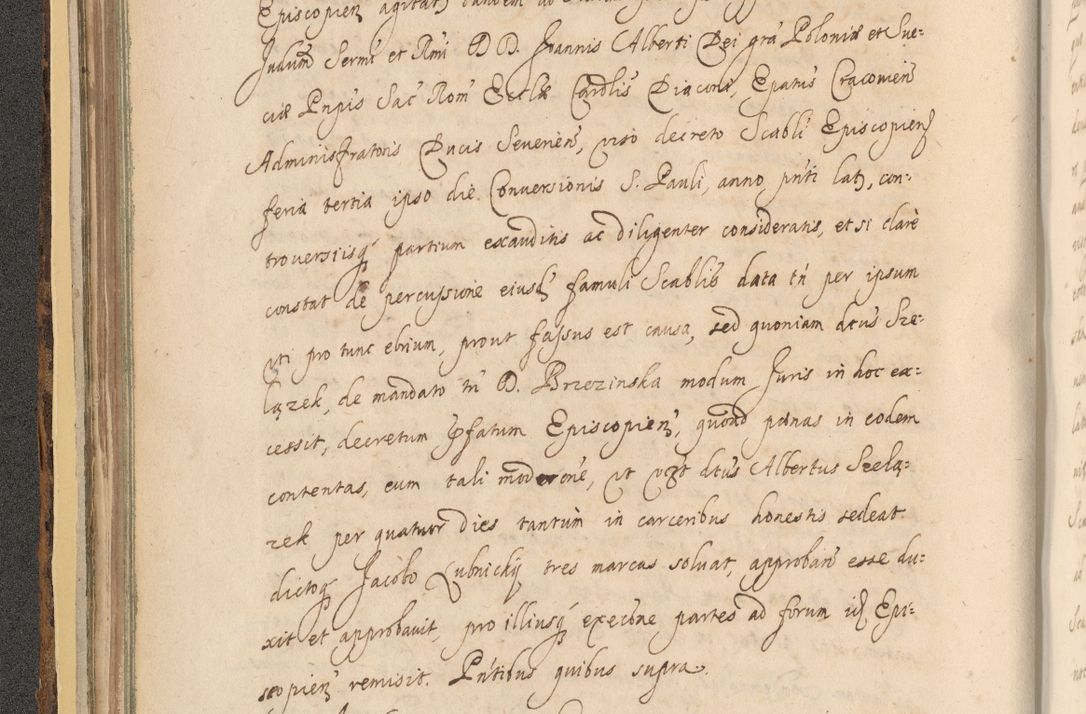 Episcopien̄ agitat̄ tandem ad
Judiciū Sermī et Rmī D D. Joannis Alberti Dei grã Poloniæ et Sue-
ciæ Pnpis Sac Rom̄ Ecclæ Cardlis Diaconi, Epatus Cracovien̄
Administratoris Ducis Severien̄, viso decreto Scabli Episcopien̄
feria tertia ipso die Conversionis S. Pauli, anno pnti lat, con-
troversiisq partium exauditis ac diligenter consideratis, et si clarè
constat de percussione eiusd famuli Scablis data tn per ipsum
uti pro tunc ebrium, prout fassus est causa, sed quoniam dctus Sze-
lązek, de mandato tn D. Brzezinska modum Juris in hoc ex-
cessit, decretum pfatum Episcopien̄, quoad pænas in eodem
contentas, cum tali moderone, ut vzt dctus Albertus Szelą-
zek per quatuor dies tantùm in carceribus honestis sedeat
dictoq Jacobo Lubnickij tres marcas solvat, approbañ esse du-
xit et approbavit, pro illiusq execõne partes ad forum id Epi-
scopien̄ remisit. Pñtibus quibus supra.